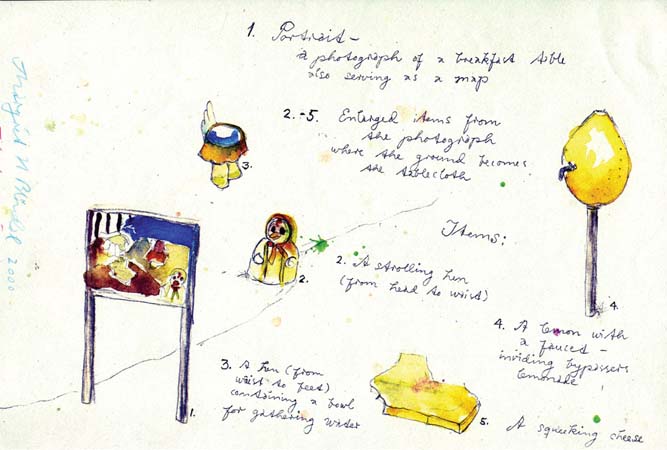 1. Portrait –
a photograph of a breakfast table
also serving as a map
2.-5. Enlarged items from
the photograph
where the ground becomes
the tablecloth
3.
Items:
2.
2. A strolling hen
(from head to waist)
4.
4. A lemon with
a faucet –
inviding bypassers
lemonade
3. A hen (from
waist to feet)
containing a bowl
for gathering water
1.
5.
5. A squeeking cheese
2000